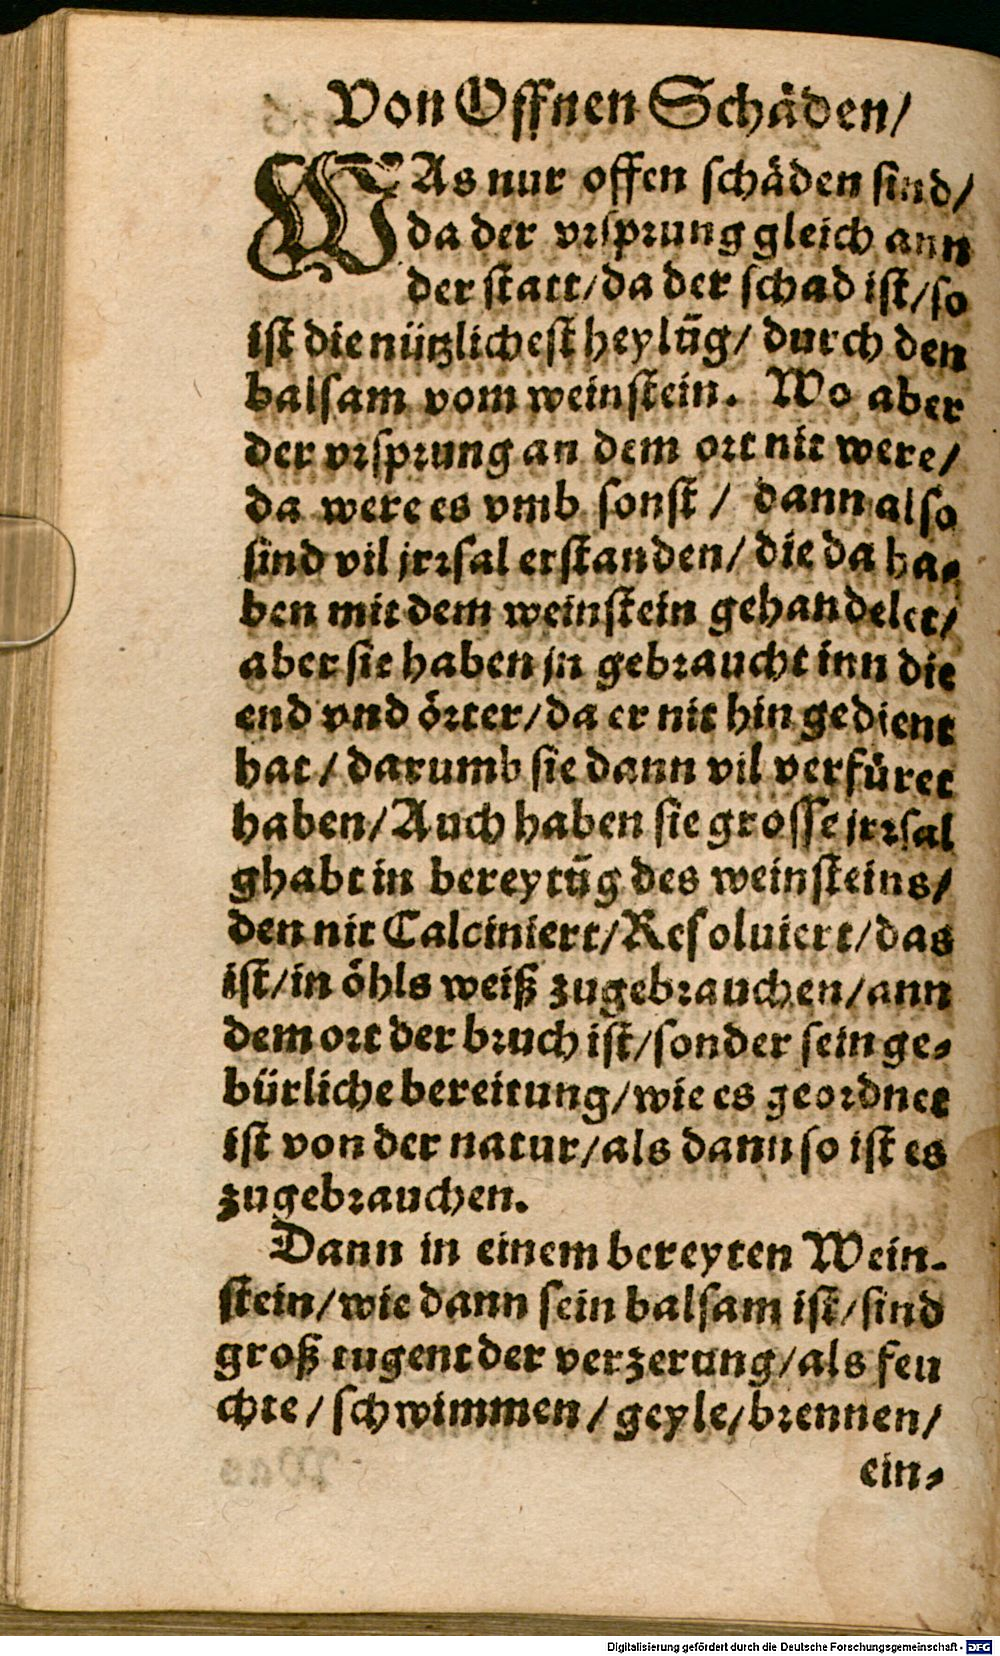 Von Offnen Schäden/
WAs nur offen schäden sind/
da der vrsprung gleich ann
der statt/da der schad ist/so
ist die nützlichest heylūg/ durch den
balsam vom weinstein. Wo aber
der vrsprung an dem ort nit were/
da were es vmb sonst / dann also
sind vil jrrsal erstanden/ die da ha-
ben mit dem weinstein gehandelet/
aber sie haben jn gebraucht inn die
end vnd örter/da er nit hin gedient
hat / darumb sie dann vil verfüret
haben/Auch haben sie grosse jrrsal
ghabt in bereytūg des weinsteins/
den nit Calciniert/Resoluiert/das
ist/in öhls weiß zugebrauchen/ann
dem ort der bruch ist/sonder sein ge-
bürliche bereitung/wie es geordnet
ist von der natur/als dann so ist es
zugebrauchen.
Dann in einem bereyten Wein-
stein/wie dann sein balsam ist/sind
groß tugent der verzerung/als feu
chte/schwimmen/geyle/brennen/
ein-
Digitalisierung gefördert durch die Deutsche Forschungsgemeinschaft - DFG